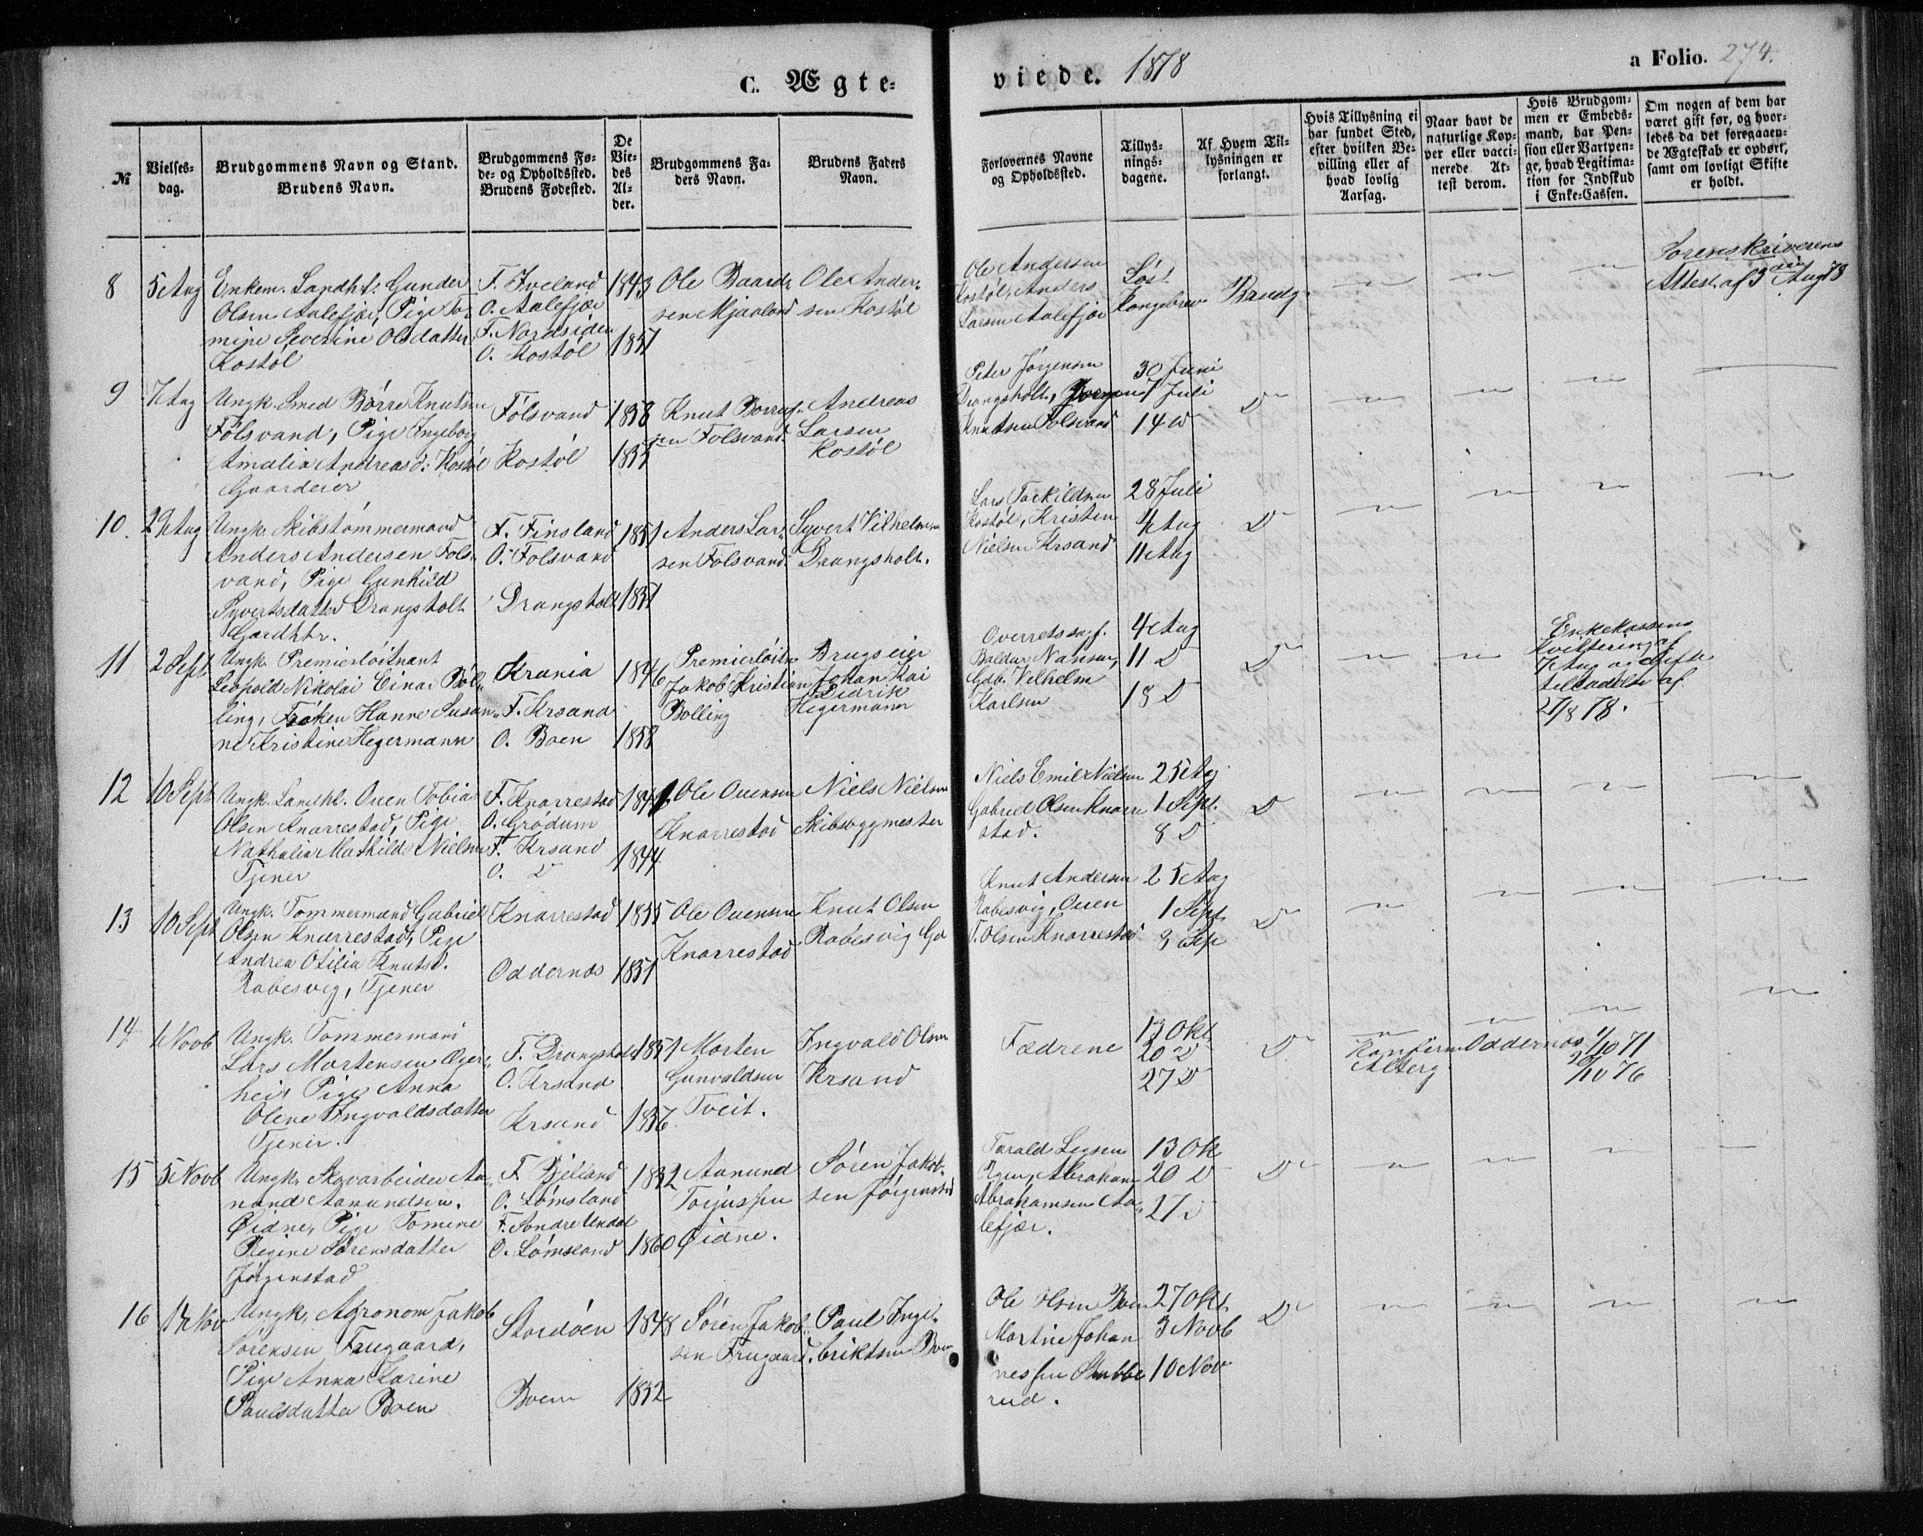 C. Ægte-
viede. 1878
a Folio. 274.
№
Vielses-
dag.
Brudgommens Navn og Stand.
Brudens Navn.
Brudgommens Fø-
de- og Opholdssted.
Brudens Fødested.
De
Vie-
des
Al-
der.
Brudgommens Fa-
ders Navn.
Brudens Faders
Navn.
Forlovernes Navne
og Opholdssted.
Tillys-
nings-
dagene.
Af Hvem Til-
lysningen er
forlangt.
Hvis Tillysning ei
har fundet Sted,
efter hvilken Be-
villing eller af
hvad lovlig
Aarsag.
Naar havt de
naturlige Kop-
per eller vacci-
nerede At-
test derom.
Hvis Brudgom-
men er Embeds-
mand, har Pen-
sion eller Vartpen-
ge, hvad Legitima-
tion for Indskud
i Enke-Cassen.
Om nogen af dem har
været gift før, og hvor-
ledes da det foregaaen-
de Ægteskab er ophørt,
samt om lovligt Skifte
er holdt.
8
5 Aug
Enkem. Landhl. Gunder
Olsen Aalefjær, Pige To-
mine Severine Olsdatter
Kostøl
F. Iveland
O. Aalefjær
F. Nordsiden
O. Kostøl
1843
1857
Ole Baard-
sen Mjaaland
Ole Ander-
sen Kostøl
Ole Andersen
Kostøl, Anders
Larsen Aalefjær
Løst
Kongebrev
Brudg.
Sorenskriverens
Attest af 3die Aug 78
9
7 Aug
Ungk. Smed Børre Knutsen
Følsvand, Pige Ingeborg
Amalia Andreasd: Kostøl
Gaardeier
Følsvand
Kostøl
1838
1855
Knut Borruf-
sen Følsvand
Andreas
Larsen
Kostøl
Peter Jørgensen
Drangsholt, Jørgen
Knutsen Følsvand
30 Juni
7 Juli
14 D
D
10.
29 Aug
Ungk. Skibstømmermand
Anders Andersen Føls-
vand, Pige Gunhild
Syvertsdatter Drangsholt
Gardhbr.
F. Finsland
O. Følsvand
Drangsholt
1851
1857
Anders Lar-
sen Følsvand.
Syvert Vilhelmsen
Drangsholt.
Lars Torkildsen
Kostøl, Kristen
Nielsen Krsand
28 Juli
4 Aug
11 Aug
D
11
2 Sept
Ungk. Premierløitnant
Leopold Nikolai Einar Bøl-
ling, Frøken Hanne Susan-
ne Kristine Hegermann
Krania
F. Krsand
O. Boen
1846
1858
Premierløitn.
Jakob Kristian
Bolling
Brugseier
Johan Kai
Didrik
Hegermann
Overretssagf.
Baldur Nansen,
Gdb. Vilhelm
Karlsen
4 Aug
11 D
18 D
D
Enkekassens
Kvittering af
7 Aug og Gifte
tilladelse af
21/8 78.
12
10 Sept
Ungk. Landhl. Ouen Tobias
Olsen Knarrestad, Pige
Nathalia Mathilde Nielsen
Tjener
F. Knarrestad
O. Grødum
F. Krsand
O. D
1844
Ole Ouensen
Knarrestad
Niels Nielsen
Skibsbygmester
Niels Emil Nielsen
Gabriel Olsen Knarre
stad.
25 Aug
1 Sept.
8 D
D
13
10 Sept
Ungk. Tømmermand Gabriel
Olsen Knarrestad, Pige
Andrea Otilia Knutsd.
Rabesvig, Tjener
Knarrestad
Oddernæs
1855
1851
Ole Ouensen
Knarrestad
Knut Olsen
Rabesvig
Knut Andersen
Rabesvig, Ouen
T. Olsen Knarrestad
25 Aug
1 Sept.
8 Sept
D
14
1 Novb
Ungk. Tømmermand
Lars Mortensen Ager-
hei, Pige Anna
Olene Ingvaldsdatter
Tjener.
F. Drangsholt
O. Krsand
Krsand
1851
1856
Morten
Gunvaldsen
Tveit.
Ingvald Olsen
Krsand
Fædrene
13 Okt
20 D
27 D
D
Konfirm Oddernæs 1/10 71
Alberg
1/10 76
15
5 Novb
Ungk. Skovarbeider Aa-
nund Aanundsen
Øidne, Pige Tomine
Regine Sørensdatter
Jørgenstad
F. Bjelland
O. Lømsland
F. Søndre Undal
O. Lømsland
1852
1860
Aanund
Torjussen
Øidne.
Søren Jakob-
sen Jørgenstad
Tarald
Abraham
Abrahamsen Aa-
lefjær.
13 Ok
20 D
27 D
D
16
14 Nov
Ungk. Agronom Jakob
Sørensen Frugaard,
Pige Anna Karine
Paulsdatter Boen
Stordøen
Boen
1848
1852
Søren Jakob-
sen Frugaard.
Paul Inge-
briktsen Boen
Ole Olsen Boen
Martin Johan
nessen Stubbe
rud.
27 Okt.
3 Novb
10 Nov
D